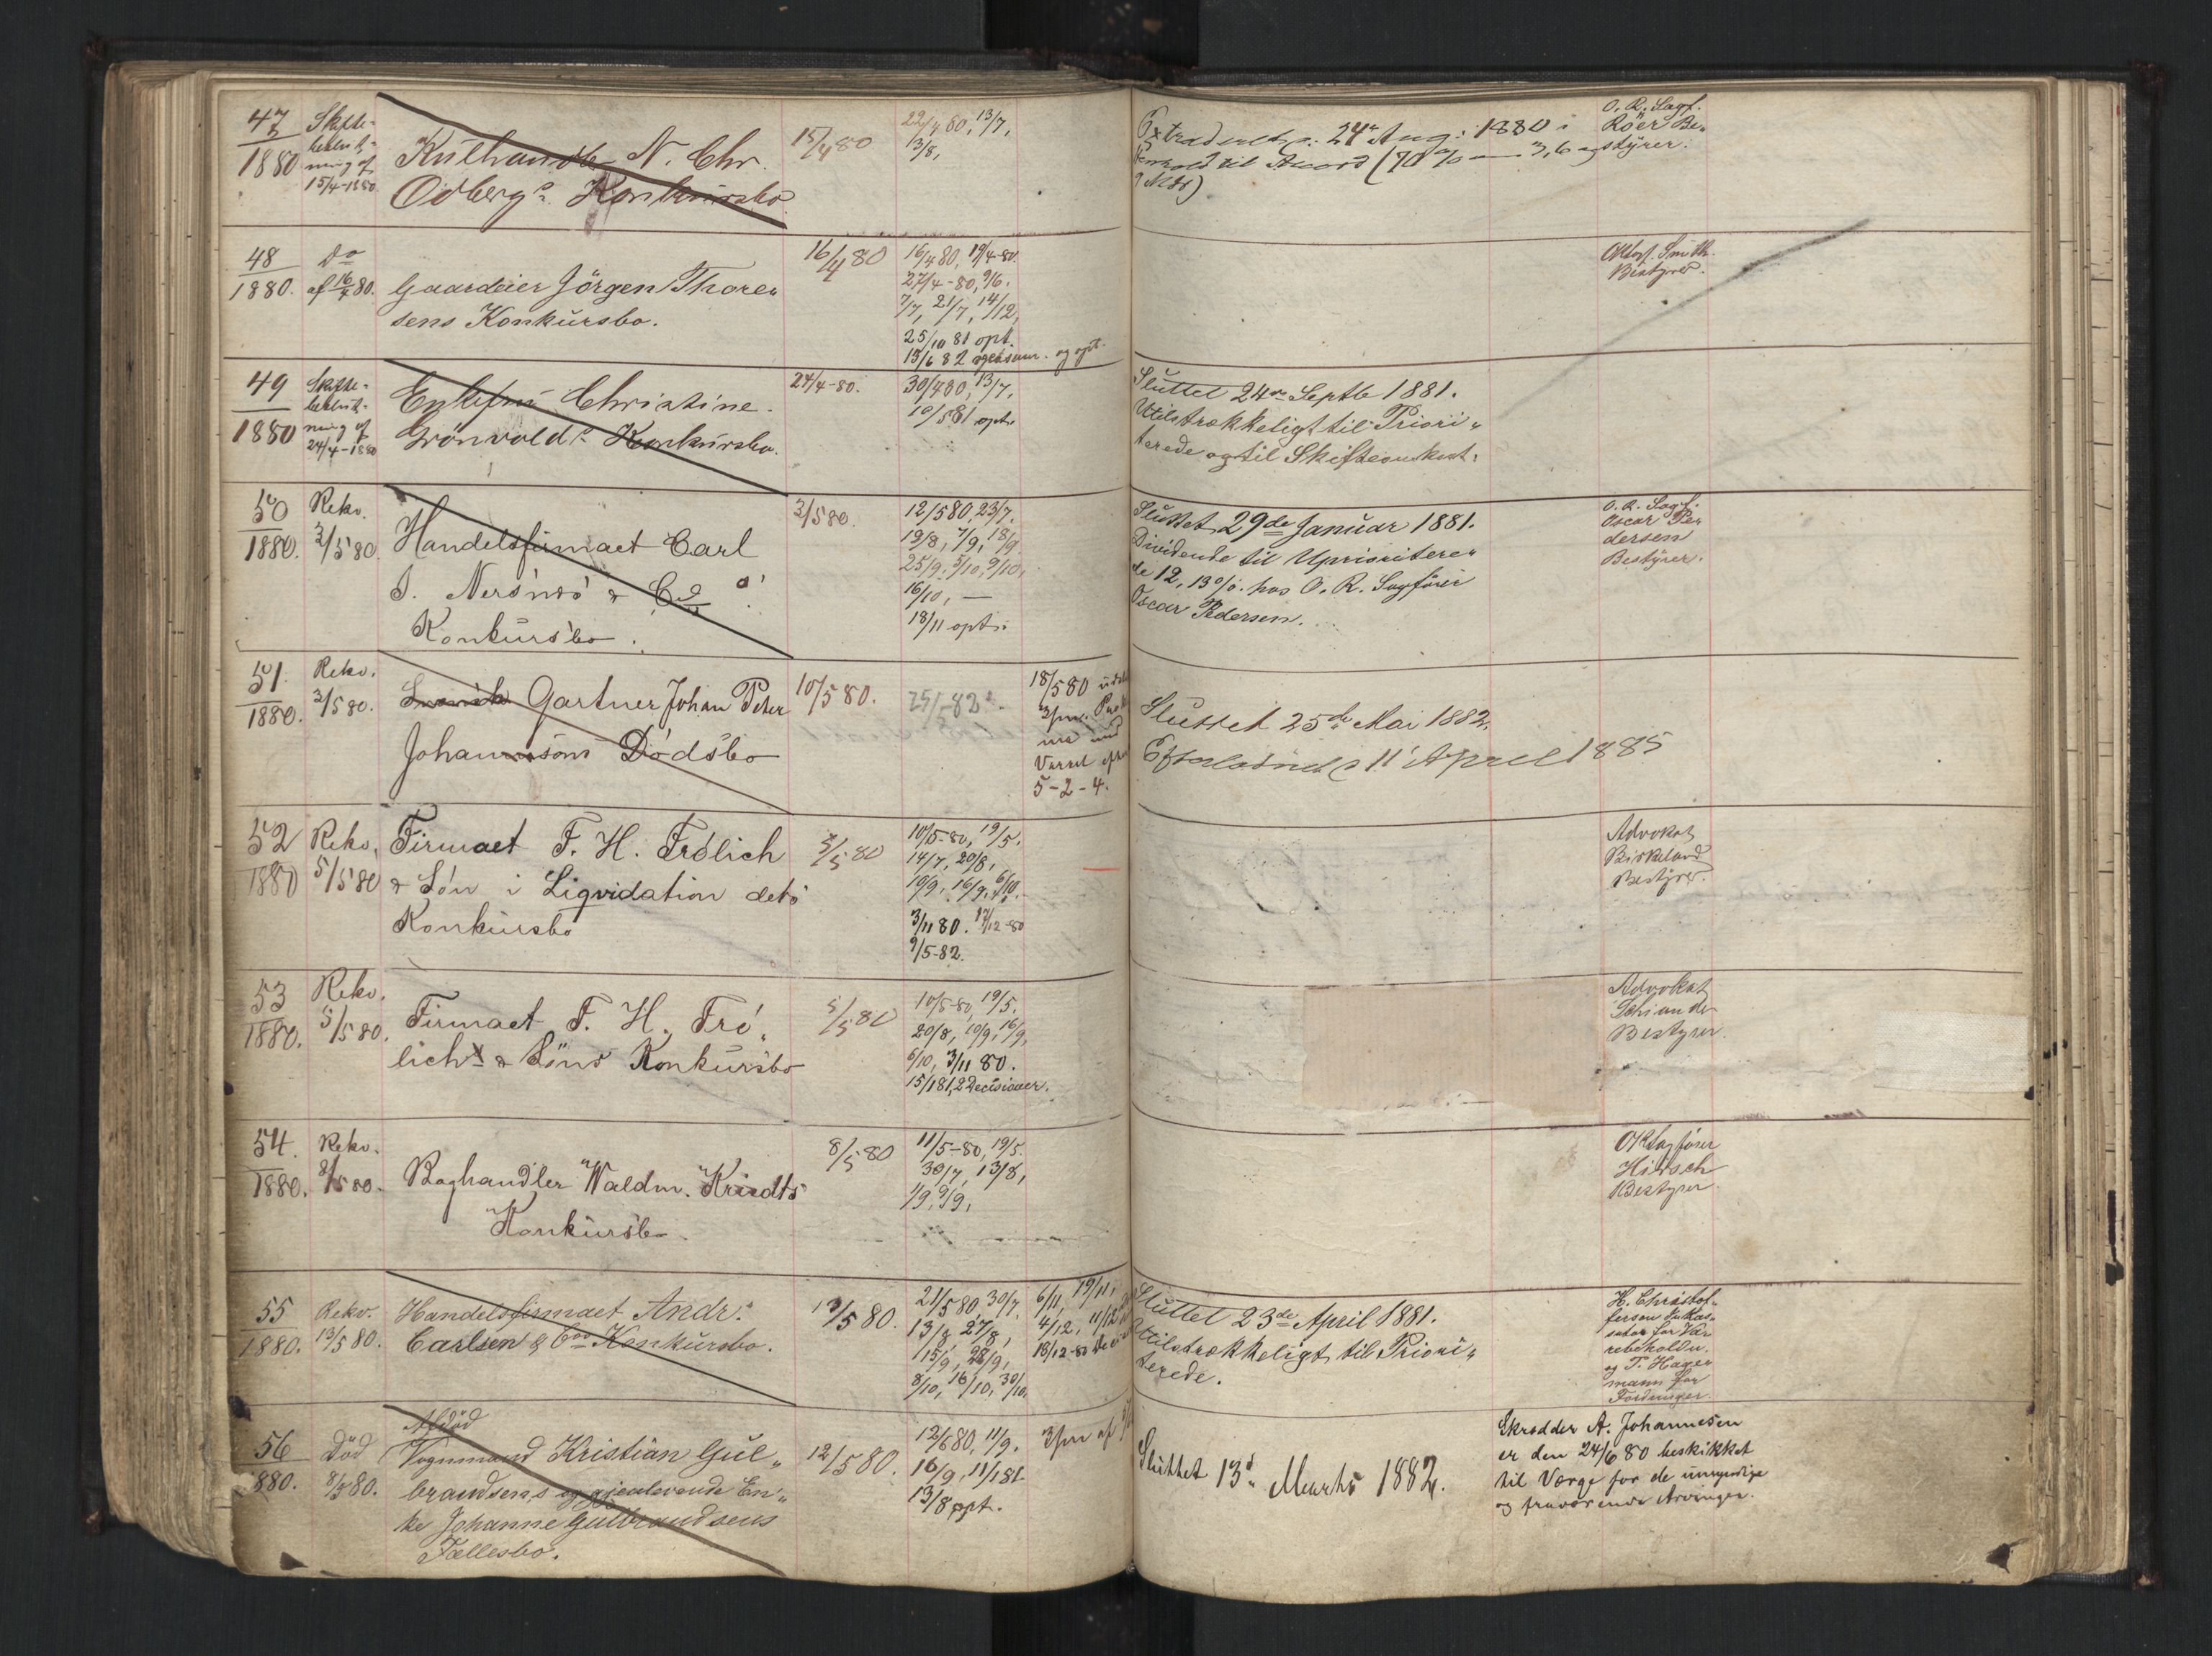 47
1880
Skifte-
beslut-
ning af
15/4-1880
Kulhandler N. Chr.
Odbergs Konkursbo
15/4 80
22/4 80, 13/7,
13/8,
Extraderet p. 24de Aug: 1880 i
Henhold til Akkord (70 % 3, 6 og
9 Mdr)
O. R. Sagf.
Röer Be-
styrer.
48
1880.
Do
af 16/4 80.
Gaardeier Jörgen Thore„
sens Konkursbo.
16/4 80
16/4 80, 19/4-80.
27/4-80, 9/6.
7/7, 21/7, 14/12,
25/10 81 opt.
15/6 82 og opt.
ORSagf. Smith
Bestyrer.
49
1880
Skifte-
beslut-
ning af
24/4-1880
Enkefru Christine
Grönvolds Konkursbo.
24/4-80.
30/4 80, 13/7.
10/5 81 opt.
Sluttet 24de Septb 1881.
Utilstrækkeligt til Priori„
terede og til Skifteomkost.
50
1880.
Rekv.
3/5 80
Handelsfirmaet Carl
J. & Co s
Konkursbo.
3/5 80.
12/5 80, 23/7.
19/8, 7/9, 18/9
25/9, 5/10, 9/10,
16/10, —
18/11 opt.
Sluttet 29de Januar 1881.
Dividende til Uprioritere„
de 12, 13 %. hos O. R. Sagförer
Oscar Pedersen.
O. R. Sagf.
Oscar Pe
dersen
Bestyrer.
51
1880.
Rekv.
3/5 80.
Gartner Johan Peter
Johannesons Dödsbo
10/5 80.
25/5 82
18/5 80
Varsel efter
5-2-4.
Sluttet 25de Mai 1882.
Efterladnet p 11 April 1885
52
1880
Rekv.
5/5 80
Firmaet F. H. Frölich
& Sön i Liqvidation dets
Konkursbo
5/5 80
10/5-80, 19/5.
14/7, 20/8,
10/9, 16/9, 6/10.
3/11 80. 17/12-80
9/5-82.
Advokat
Birkeland
Bestyrer.
53
1880.
Rekv.
5/5 80.
Firmaet F. H. Frö„
lichs & Söns Konkursbo
5/5 80
10/5-80, 19/5.
20/8, 10/9, 16/9,
6/10, 3/11 80.
15/1 81, 2 Decisioner.
Advokat
Schiander
Bestyrer.
54.
1880.
Rekv.
8/5 80.
Boghandler Waldm. Kriedts
Konkursbo.
8/5 80
11/5-80, 19/5.
30/7, 13/8,
1/9, 9/9,
ORSagförer
Hirsch
Bestyrer.
55
1880.
Rekv.
13/5 80.
Handelsfirmaet Andr.
Carlsen & Cos Konkursbo.
13/5 80.
21/5 80, 30/7,
13/8, 27/8,
15/9, 28/9,
8/10, 16/10, 30/10.
6/11, 19/11,
4/12, 11/12
18/12-80
Sluttet 23de April 1881.
Utilstrækkeligt til Priori„
terede.
H. Christof-
fersen Inkas-
sator for Va-
rebeholdn.
og T. Hager
mann for
Fordringer.
56
1880.
Död
8/5 80.
Afdöd
Vognmand Kristian Gul„
brandsens og gjenlevende En„
ke Johanne Gulbrandsens
Fællesbo.
12/5 80.
12/6 80, 11/9.
16/9, 11/1 81
13/8 opt.
Sluttet 13de Marts 1882.
Skrædder A. Johannesen
er den 24/6 80 beskikket
til Værge for de umyndige
og fraværende Arvinger.